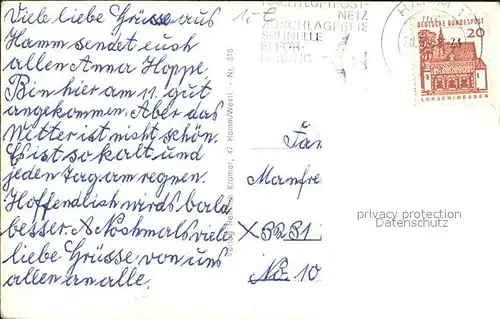 Viele liebe Grüsse aus
Hamm sendet euch
allen Anna Hoppe.
Bin hier am 11. gut
angekommen. Aber das
Wetter ist nicht schön.
Es ist so kalt und
jeden Tag am regnen.
Hoffendlich wirds bald
besser. Nochmals viele
liebe Grüsse von uns
allen an alle.
NETZ
ZUSCHLAGFREIE
SCHNELLE
BEFÖR-
DERUNG
HAMM
DEUTSCHE BUNDESPOST
20
LORSCH/HESSEN
Verlag Heinrich Kramer, 47 Hamm/Westf. - Nr. 318
Fam
Manfre
X 3231
No. 10
privacy protection
Datenschutz